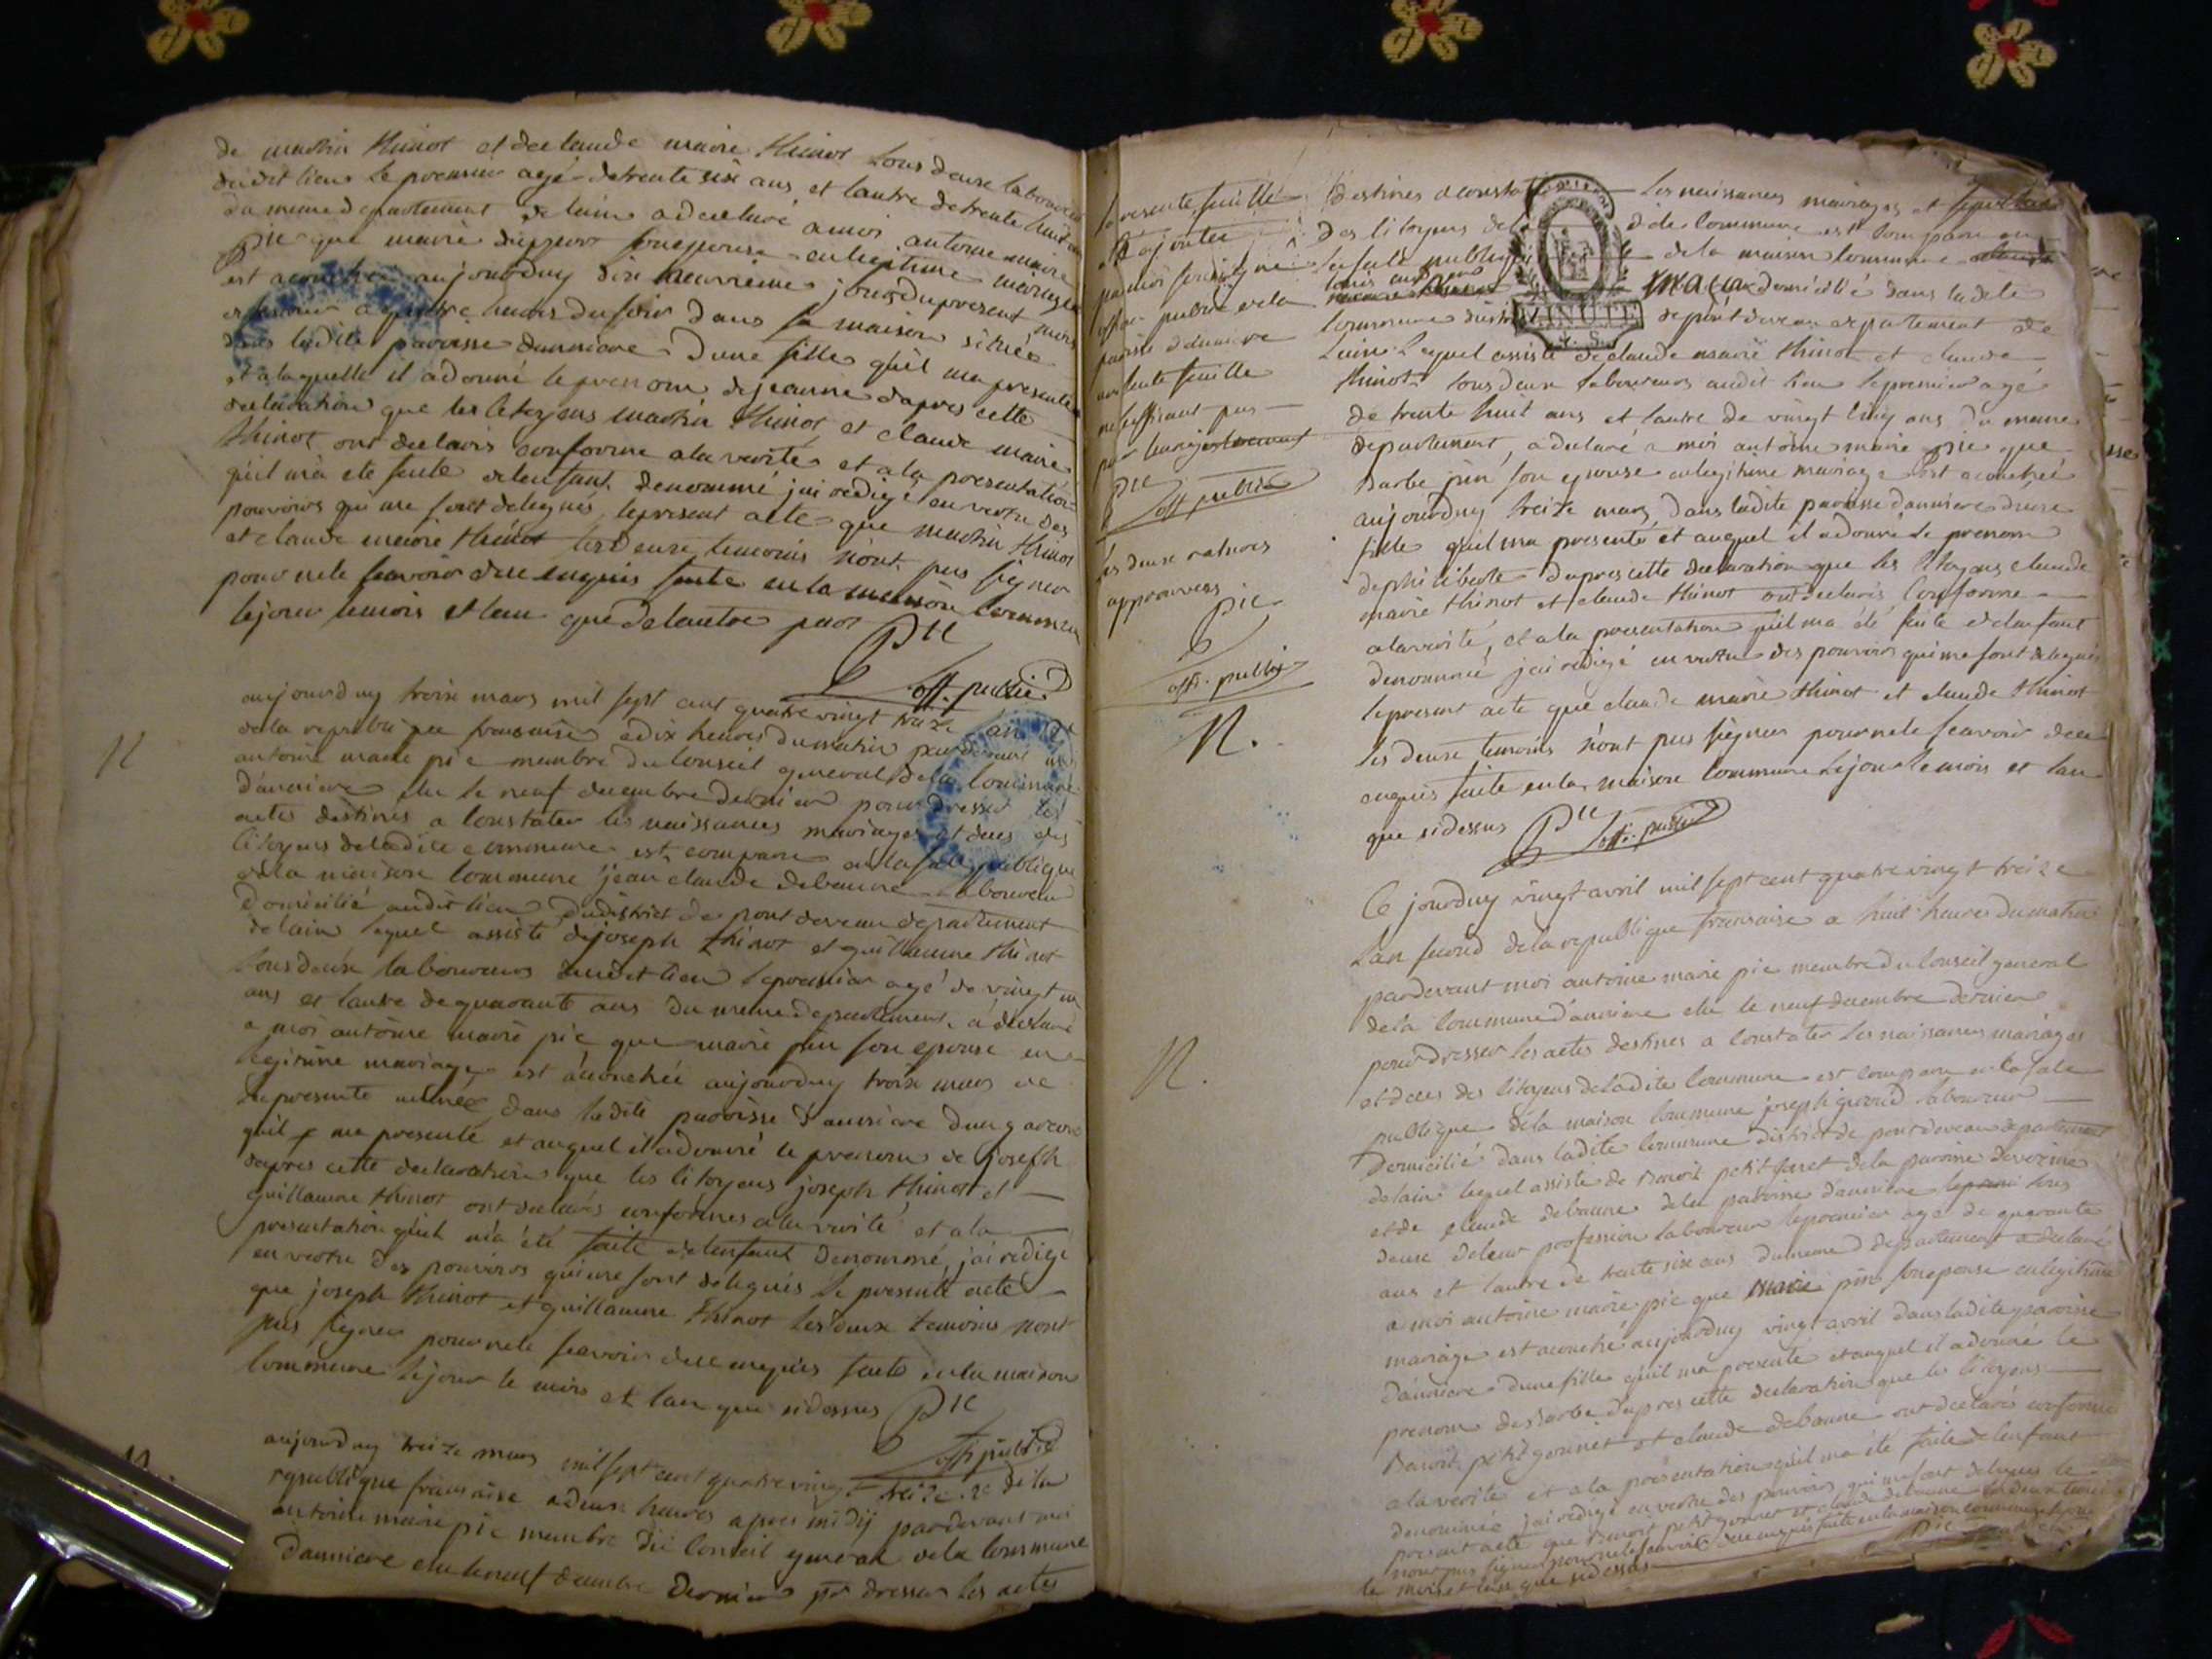 de mathin thinot et de claude marie thinot tous deux laboureurs
dudit lieu le premier agé de trente six ans et lautre de trente huit ans
du meme departement de lain a declaré a moi antoine marie
pic que marie son epouse en legitime mariage
est acouchée aujourduy dix neuvieme jour du present mois
a quatre heures du soir dans sa maison située
dans ladite paroisse danniere dune fille quil ma presenté
et a laquelle il a donné le prenom de jeanne dapres cette
declaration que les citoyens mathin thinot et claude marie
thinot ont declaré conforme a la verité et a la presentation
quil m'a été faite de lenfant denommé jai redigé en vertu des
pouvoirs qui me sont delegués le present acte que mathin thinot
et claude marie thinot les deux temoins n'ont pas signer
pour ne le scavoir de ce enquis faite en la maison commune
le jour le mois et lan que de lautre part
Pic
off. public
aujourduy trois mars mil sept cent quatre vingt treize an 2e
de la republique francaise a dix heures du matin pardevant moi
antoine marie pic membre du conseil general de la commune
d'anniere elu le neuf decembre dernier pour dresser les
actes destinés a constater les naissances mariages et deces des
citoyens de ladite commune est comparu en la sale publique
de la maison commune jean claude debaune laboureur
domicilié audit lieu du district de pont de veau departement
de lain lequel assisté de joseph thinot et guillaume thinot
tous deux laboureurs audit lieu le premier agé de vingt un
ans et lautre de quarante ans du meme departement, a declaré
a moi antoine marie pic que marie pin son epouse en
legitime mariage est acouchée aujourduy trois mars de
la presente année dans ladite paroisse d'anniere dun garcon
quil me presenté et auquel il a donné le prenom de joseph
dapres cette declaration que les citoyens joseph thinot et
guillaume thinot ont declarés conformes a la verité et a la
presentation quil m'a été faite de lenfant denommé, jai redigé
en vertu des pouvoirs qui me sont delegués le present acte
que joseph thinot et guillaume thinot les deux temoins n'ont
pas signer pour ne le scavoir de ce enquis faite en la maison
commune le jour le mois et lan que sidessus
Pic
off public
N
aujourduy treize mars mil sept cent quatre vingt treize 2e de la
republique francaise a deux heures apres midij pardevant moi
antoine marie pic membre du conseil general de la commune
danniere elu le neuf decembre dernier pr dresser les actes
N.
la presente feuille
a été ajoutée
par moi soussigné
officier public de la
paroisse d'anniere
une seule feuille
ne suffisant pas
pour
Pic
off public
les deux ratures
approuvées
Pic
off. public
N.
destinés a constater les naissances mariages et sepultures
des citoyens de ladite commune est comparu en
la sale publique de la maison commune
domicilié dans ladite
commune district de pont de veau departement de
lain lequel assisté de claude marie thinot et claude
thinot tous deux laboureurs audit lieu le premier agé
de trente huit ans et lautre de vingt cinq ans du meme
departement, a declaré a moi antoine marie pic que
barbe pin son epouse en legitime mariage est acouchée
aujourduy treize mars dans ladite paroisse danniere dune
fille quil ma presenté et auquel il a donné le prenom
de philiberte dapres cette declaration que les citoyens claude
marie thinot et claude thinot ont declarés conforme
a la verité, et a la presentation quil ma été faite de lenfant
denommé jai redigé en vertu des pouvoirs qui me sont delegués
le present acte que claude marie thinot et claude thinot
les deux temoins n'ont pas signer pour ne le scavoir de ce
enquis faite en la maison commune le jour le mois et lan
que sidessus
Pic
off. public
N.
Ce jourduy vingt avril mil sept cent quatre vingt treize
lan second de la republique francaise a huit heures du matin
pardevant moi antoine marie pic membre du conseil general
de la commune d'anniere elu le neuf decembre dernier
pour dresser les actes destinés a constater les naissances mariages
et deces des citoyens de ladite commune est comparu en la sale
publique de la maison commune joseph laboureur
domicilié dans ladite commune district de pont de veau departement
de lain lequel assisté de benoit petit de la paroisse
et de claude debaune de la paroisse danniere tous
deux de leur profession laboureur le premier agé de quarante
ans et lautre de trente six ans du meme departement a declaré
a moi antoine marie pic que marie pin son epouse en legitime
mariage est acouché aujourduy vingt avril dans ladite paroisse
d'anniere dune fille quil ma presenté et auquel il a donné le
prenom de barbe dapres cette declaration que les citoyens
benoit petit et claude debaune ont declarés conforme
a la verité et a la presentation quil ma été faite de lenfant
denommé jai redigé en vertu des pouvoirs qui me sont delegués le
present acte que benoit petit et claude debaune les deux temoins
n'ont pas signer pour ne le scavoir de ce enquis faite en la maison commune le jour
le mois et lan que sidessus
Pic